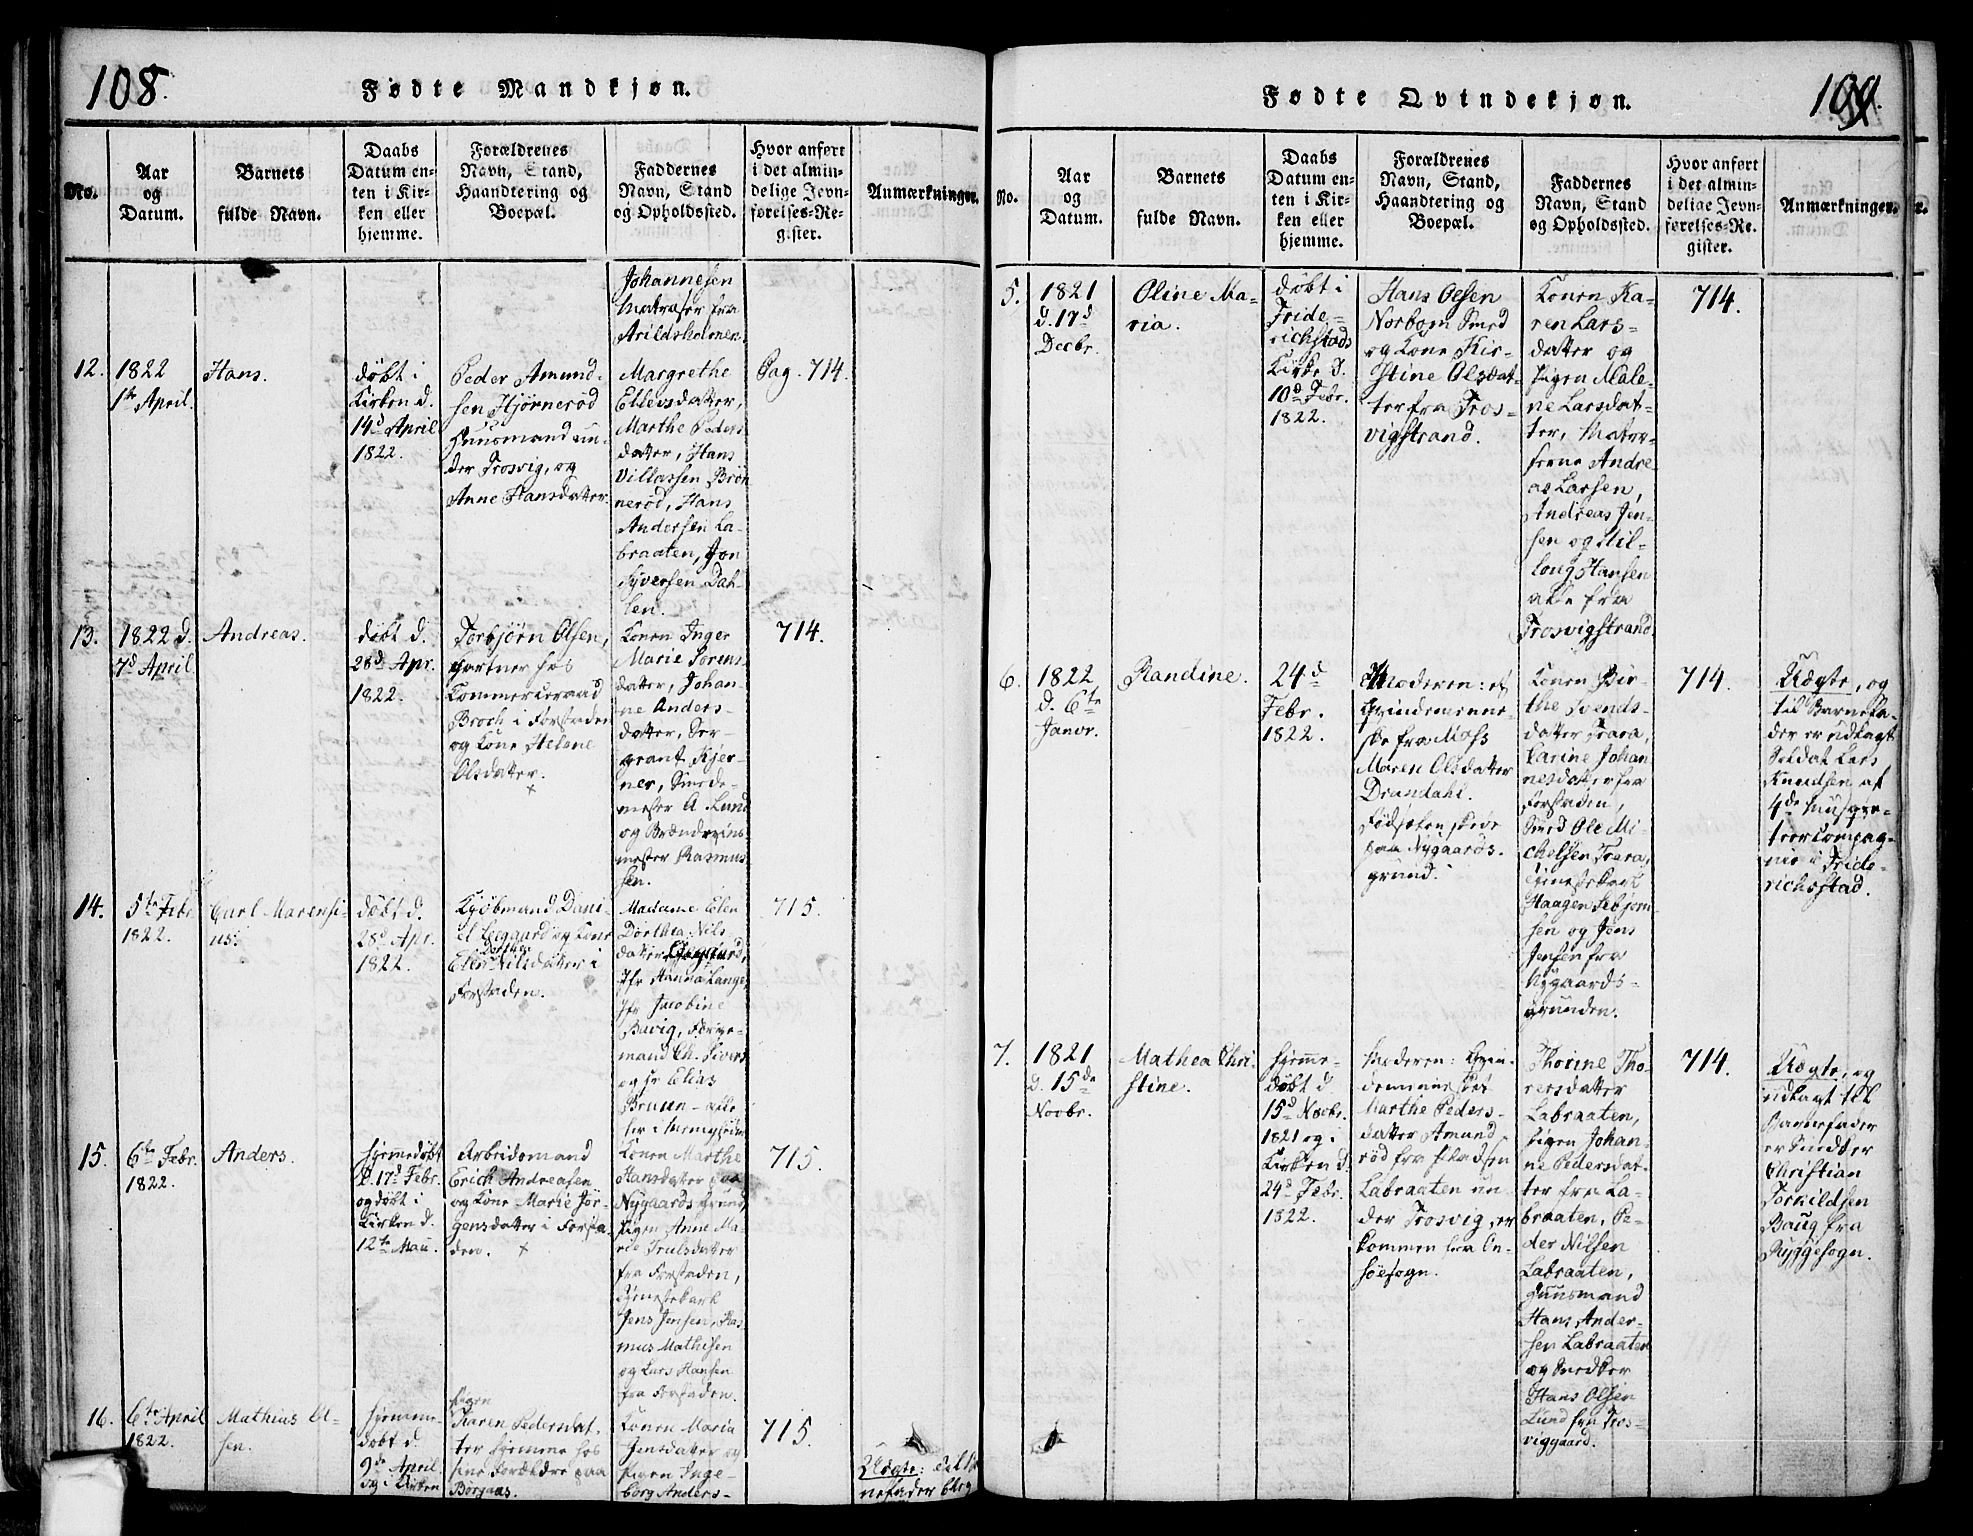 108.
Fødte Mandkjøn.
No.
Aar
og
Datum.
Barnets
fulde Navn.
Daabs
Datum en-
ten i Kir-
ken eller
hjemme.
Forældrenes
Navn, Stand,
Haandtering og
Boepæl.
Faddernes
Navn, Stand
og Opholdssted.
Hvor anført
i det almin-
delige Jevn-
førelses-Re-
gister.
Anmærkninger.
Johannesen
Matroser fra
Arildsholmen
12.
1822
1te April.
Hans.
døbt i
Kirken d.
14d April
1822.
Peder Amund-
sen Hjørnerød
Huusmand un-
der Trosvig, og
Anne Hansdatter.
Margrethe
Ellevsdatter,
Marthe Peders
datter, Hans
Villassen Brøn
nerød, Hans
Andersen La-
braaten, Jon
Syversen Dah-
len.
Pag. 714.
13.
1822 d.
7d April
Andreas.
døbt d.
28d Apr.
1822.
Torbjørn Olsen,
Gartner hos
Kommerceraad
Broch i Forstaden
og Kone Helene
Olsdatter.
+
Konen Inger
Marie Sørens-
datter, Johan-
ne Anders-
datter, Ser-
grant Kjer-
ner, Smede-
mester A Lund
og Brændeviins
mester Rasmus-
sen.
714.
14.
5te Febr
1822.
Carl Marensi-
us.
døbt d.
28d Apr.
1822.
Kjøbmand Dani-
el Leegaard og Kone
Dorthea
Elen Nilsdatter i
Forstaden.
Madame Elen
Dorthea Nils-
datter
Jfr Hanna Lange,
Jfr Jacobine
Bavig,
mand Ch. Sivers
og Hr Elias
Bruun – alle
her i Menigheden
715.
15.
6te Febr.
1822.
Anders.
hjemmedøbt
d. 17d Febr.
og døbt i
Kirken d.
12te Mai.
Arbeidsmand
Erich Andreasen
og Kone Marie Jør-
gensdatter i Forsta-
den. +
Konen Marthe
Hansdatter paa
Nygaards Grund,
Pigen Anne Ma-
rie Trulsdatter
fra Forstaden,
Tjenestekarl
Jens Jensen, Ras
mus Mathisen
og Lars Hansen
fra Forstaden.
715.
16.
6te April
1822.
Mathias Ol-
sen.
hjemme-
døbt d.
9de April
og i Kirken
Pigen
Karen Pedersdat-
ter hjemme hos
sine Forældre paa
Borgaas.
Konen Maria
Jensdatter og
Pigen Inge-
borg Anders-
715.
Uægte: det til
nefader blev
109.
Fødte Qvindekjøn.
No.
Aar
og
Datum.
Barnets
fulde Navn.
Daabs
Datum en-
ten i Kir-
ken eller
hjemme.
Forældrenes
Navn, Stand,
Haandtering og
Boepæl.
Faddernes
Navn, Stand
og Opholdssted.
Hvor anført
i det almin-
delige Jevn-
førelses-Re-
gister.
Anmærkninger.
5.
1821
d. 17d
Decbr.
Oline Ma-
ria.
døbt i
Fride-
richstads
Kirke d.
10d Febr.
1822.
Hans Olsen
Norbom Smed
og Kone Kir-
stine Olsdat-
ter fra Tros-
vigstrand.
Konen Ka-
ren Lars-
datter og
Pigen Male-
ne Larsdat-
ter, Matro-
serne Andre-
as Larsen,
Andreas Jen-
sen og Mil-
loug Hansen
alle fra
Trosvigstrand.
714.
6.
1822
d. 6te
Janvr.
Randine.
24d
Febr.
1822.
Moderen: et
Qvindemenne-
ske fra Moss
Maren Olsdatter
Drandahl.
Fødselen skede
paa Nygaards-
grund.
Konen Bir-
the Svends-
datter Trara,
Karine Johan
nesdatter fra
Forstaden,
Smed Ole Mi-
chelsen Trara,
Tjenestekarl
Haagen Tosbjørn-
sen og Jøns
Jensen fra
Nygaards-
grunden.
714.
Uægte, og
til Barnefa-
der er udlagt
Soldat Lars
Knudsen af
4de Musque-
teercompag-
nie i Fride-
richsstad.
7.
1821
d. 15de
Novbr.
Mathea Chri-
stine.
hjemme-
døbt d
15d Novbr.
1821 og i
Kirken d.
24d Febr.
1822.
Moderen: Qvin-
demennesket
Marthe Peders-
datter Amund
rød fra Pladsen
Labraaten un-
der Trosvig, er
kommen fra On-
søesogn.
Thorine Tho-
rersdatter
Labraaten,
Pigen Johan-
ne Pedersdat-
ter fra La-
braaten, Pe-
der Nilsen
Labraaten,
Huusmand
Hans Ander-
sen Labraaten
og Snedker
Hans Olsen
Lund fra Tros-
viggaard.
714.
Uægte, og
udlagt til
Barnefader
er Snedker
Christian
Torkildsen
Baug fra
Ryggesogn.